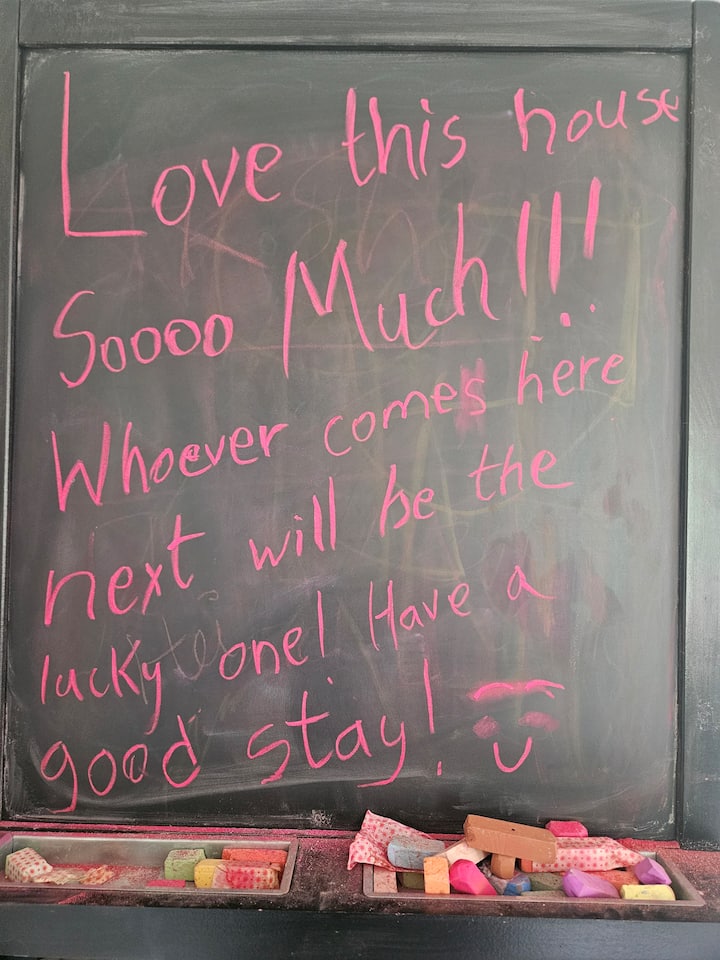 Love this house
Soooo Much!!!
Whoever comes here
next will be the
lucky one! Have a
good stay!